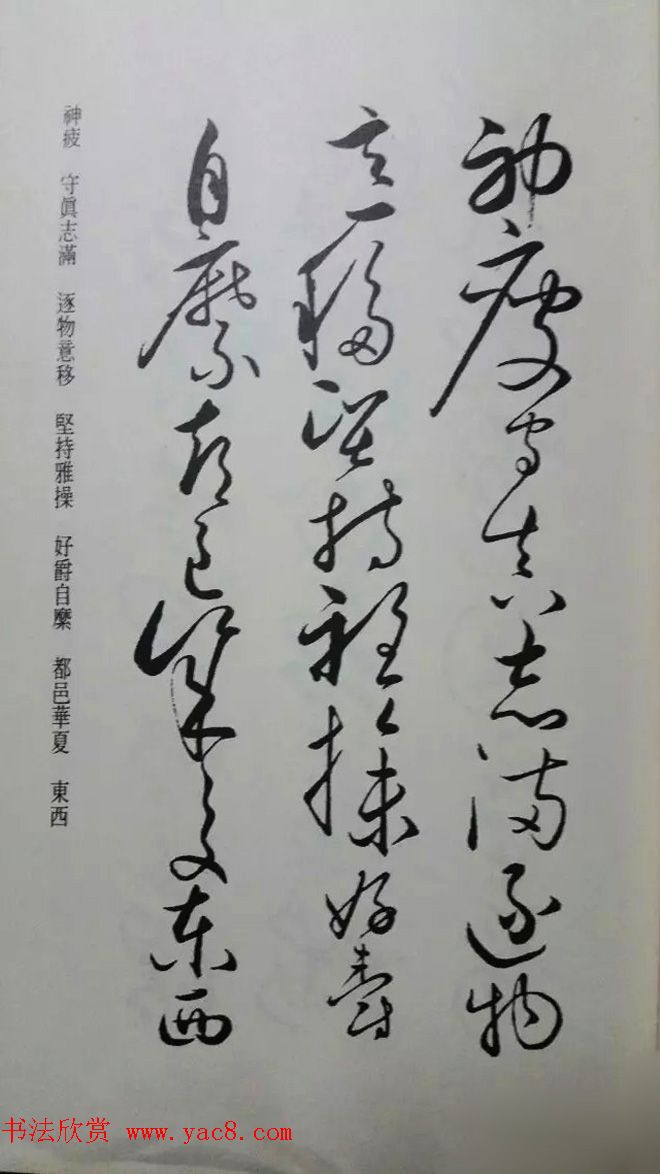 神疲守真志满逐物
意移坚持雅操好爵
自縻都邑华夏东西
神疲　守眞志滿　逐物意移　堅持雅操　好爵自縻　都邑華夏　東西
书法欣赏 www.yac8.com